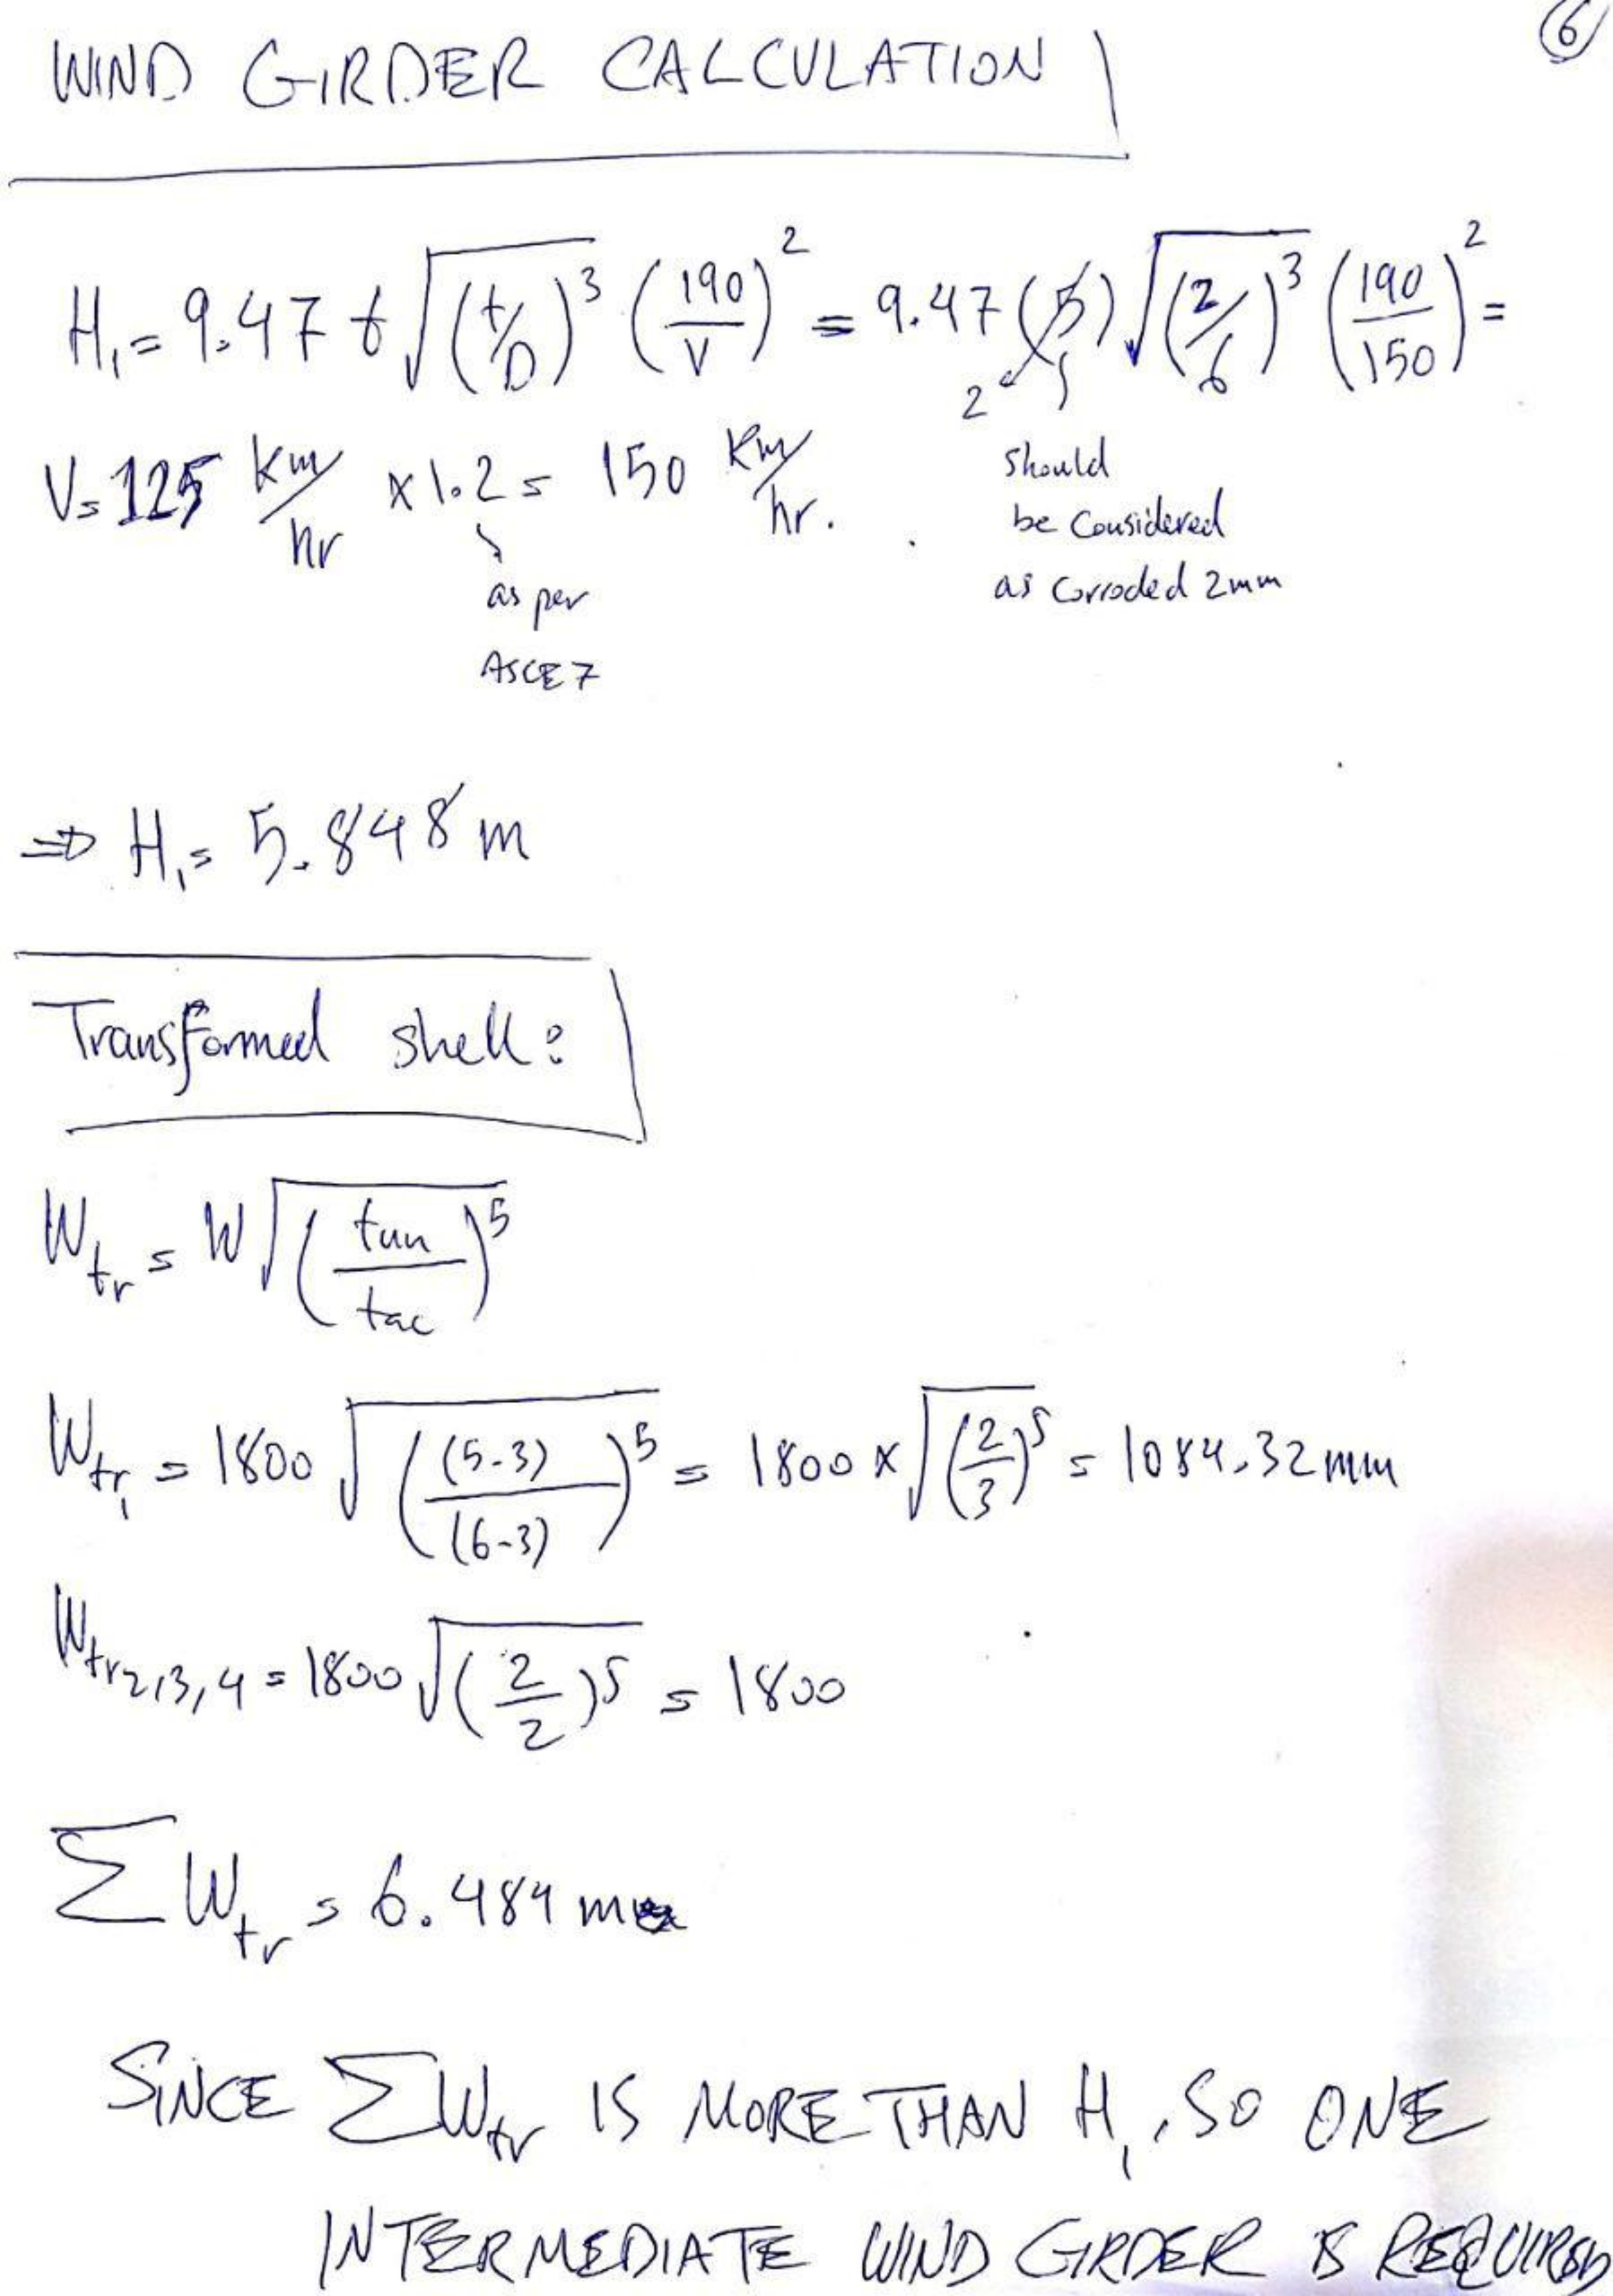 6
WIND GIRDER CALCULATION
H₁ = 9.47 t √(t/D)³ (190/V)² = 9.47 (5) √(2/6)³ (190/150)² =
2
V = 125 km/hr × 1.2 = 150 km/hr.
should
be considered
as corroded 2mm
as per
ASCE 7
⇒ H₁ = 5.848 m
Transformed shell:
W_tr = W √(tun/tac)⁵
W_tr₁ = 1800 √((5-3)/(6-3))⁵ = 1800 × √(2/3)⁵ = 1084.32 mm
W_tr2,3,4 = 1800 √(2/2)⁵ = 1800
ΣW_tr = 6.484 m
SINCE ΣW_tr IS MORE THAN H₁, SO ONE
INTERMEDIATE WIND GIRDER IS REQUIRED